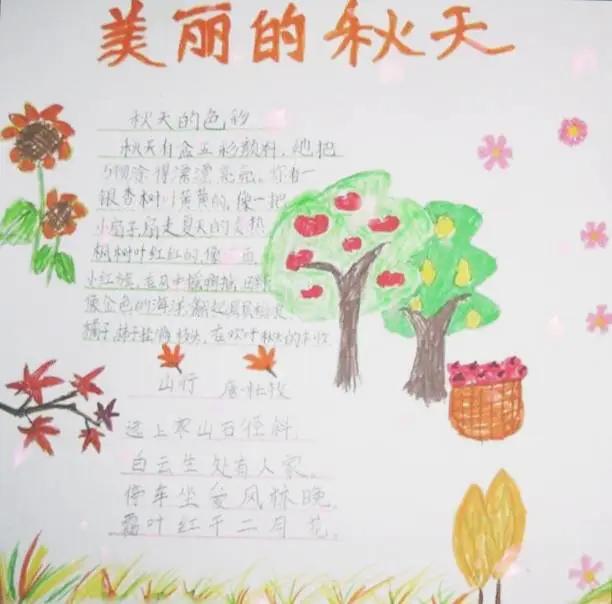 美丽的秋天
秋天的色彩
秋天有盒五彩颜料,她把
涂得漂漂亮亮。你看一
银香树叶黄黄的,像一把
小扇子,扇走夏天的炎热
枫树叶红红的,像 面
小红旗,在
像金色的海洋,翻起
橘子、柿子挂满枝头,在欢呼秋天的丰收
山行 唐·杜牧
远上寒山石径斜,
白云生处有人家。
停车坐爱风林晚,
霜叶红于二月花。